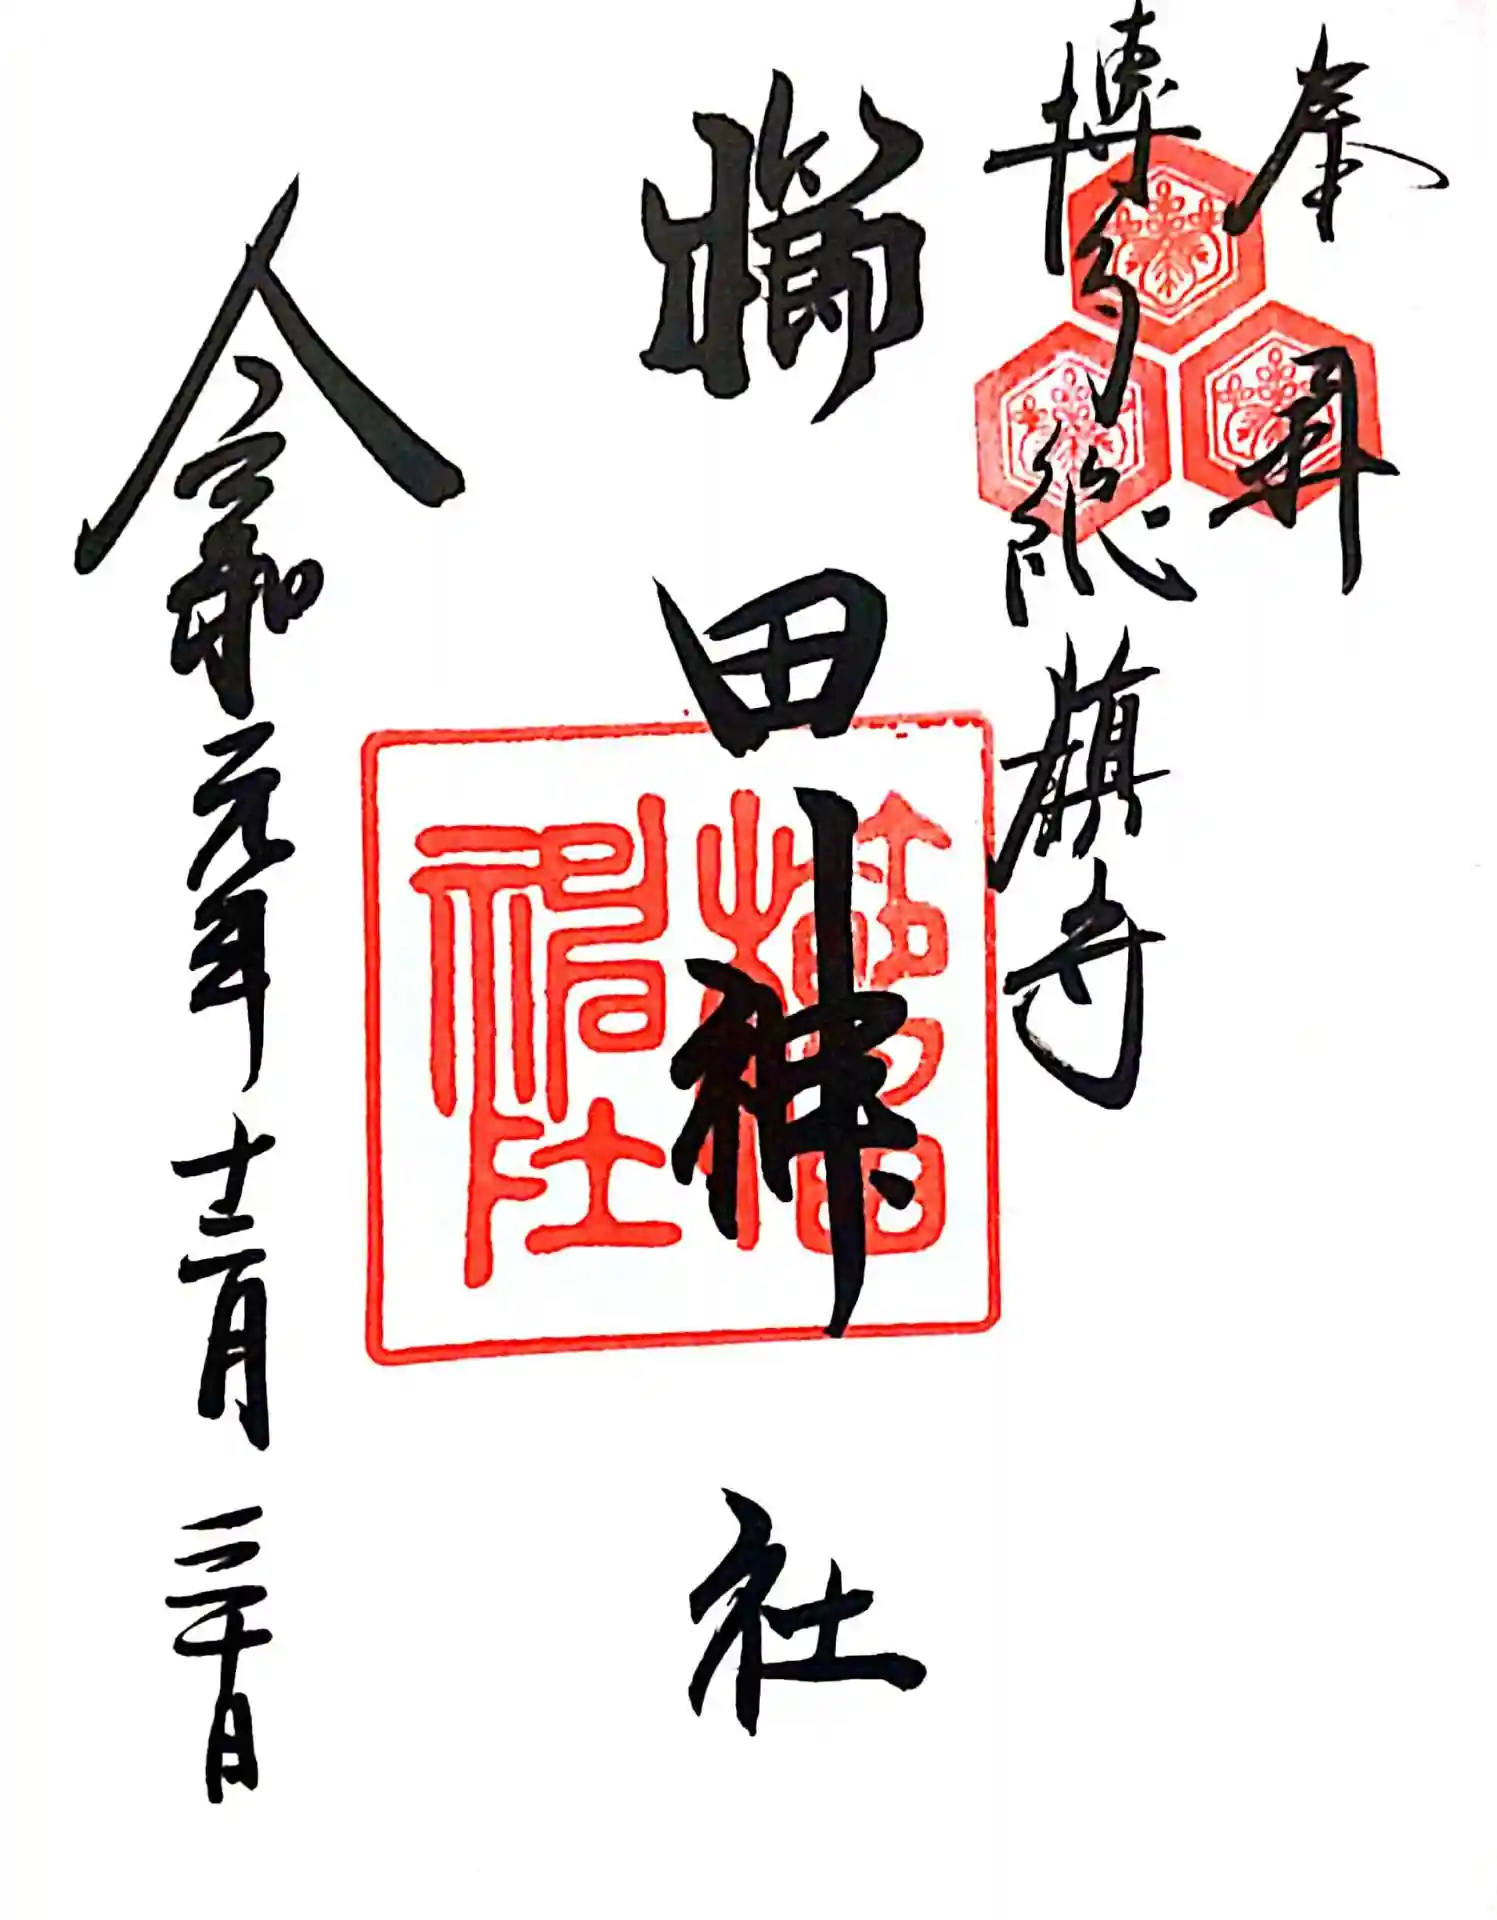 奉拝
博多総鎮守
櫛田神社
令和元年十二月三十日
櫛田
神社